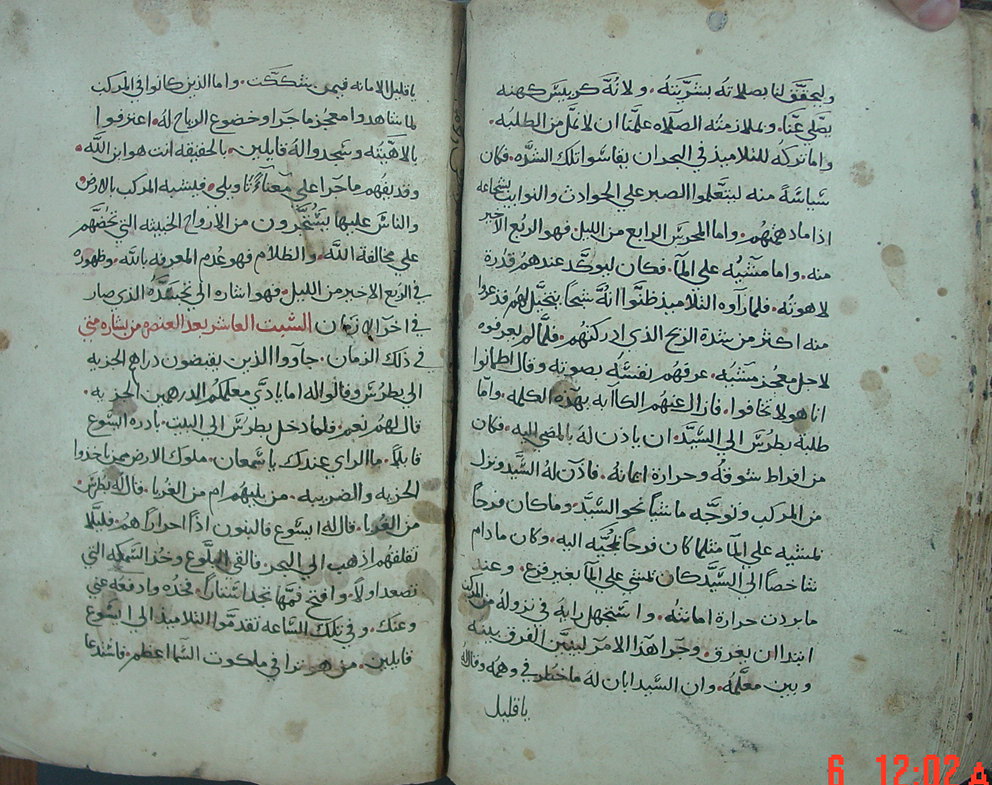 وليحقق لنا بصلاته بشريته. ولانه كرييس كهنه
يصلي عنا. وبملازمته الصلاه علمنا ان لا نمل من الطلبه.
واما تركه للتلاميذ في البحر ان يقاسوا تلك الشده. فكان
سياسة منه ليتعلموا الصبر علي الحوادث والنوايب بشجاعه
اذا ما دهمتهم. واما المحرس الرابع من الليل فهو الربع الاخير
منه. واما مشيه علي الما. فكان ليوكد عندهم قدرة
لاهوته. فلما راوه التلاميذ ظنوا انه شبحا يتخيل لهم فذعروا
منه اكثر من شدة الريح الذي ادركتهم. فلما لم يعرفوه
لاجل معجز مشيه. عرفهم نفسه بصوته وقال اطمانوا
انا هو لا تخافوا. فازال عنهم الكابه بهذه الكلمه. واما
طلبة بطرس الي السيد. ان ياذن له بالمضي اليه. فكان
من افراط شوقه وحرارة امانته. فاذن له السيد ونزل
من المركب وتوجه ماشيا نحو السيد. وما كان فرحا
بمشيه علي الما مثلما كان فرحا لمجيه اليه. وكان ما دام
شاخصا الي السيد كان يمشي علي الما بغير فزع. وعند
ما بردت حرارة امانته. واستجهل رايه في نزوله من المركب
ابتدا ان يغرق. وجرا هذا الامر ليتبين الفرق بينه
وبين معلمه. وان السيد ابان له ما خطر في وهمه وقال له
يا قليل
يا قليل الامانه فيمن تشككت. واما الذين كانوا في المركب
لما شاهدوا معجز ما جرا وخضوع الرياح له. اعترفوا
بالاهيته وسجدوا له قايلين. بالحقيقه انت هو ابن الله.
وقد يفهم ما جرا علي معنا تاويلي. فيشبه المركب بالارض
والناس عليها يستمرون من الارواح الخبيثه التي تحضهم
علي مخالفة الله. والظلام فهو عدم المعرفه بالله. وظهوره
في الربع الاخير من الليل. فهو اشاره الي تجسده الذي صار
في اخر الازمان السبت العاشر بعد العنصره من بشارة متي
في ذلك الزمان. جاووا الذين يقبضون دراهم الجزيه
الي بطرس وقالوا له اما يادي معلمكم الدرهمين الجزيه.
قال لهم نعم. فلما دخل بطرس الي البيت. بادره ايسوع
قايلا. ما الراي عندك يا شمعان. ملوك الارض ممن ياخذوا
الجزيه والضريبه. من بنيهم ام من الغربا. قال له بطرس.
من الغربا. قال له ايسوع فالبنون اذا احرارا هم. فليلا
نقلقهم اذهب الي البحر. فالقي البلوع وخذ السمكه التي
تصعد اولا. وافتح فمها تجد استارا. فخذه وادفعه عني
وعنك. وفي تلك الساعه تقدموا التلاميذ الي ايسوع
قايلين. من هو ترا في ملكوت السما اعظم. فاستدعا
6 12:02